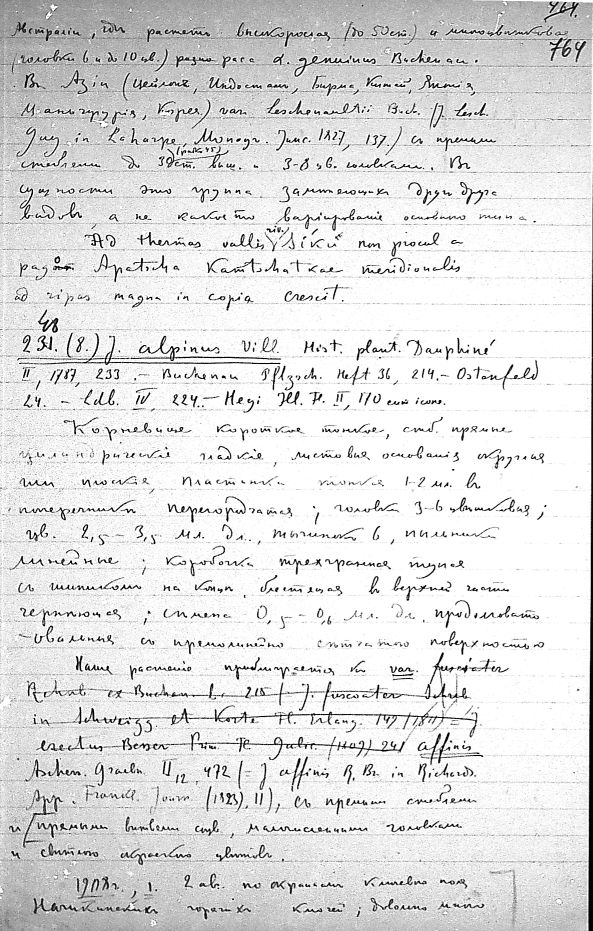 464.
764
Австралии, где растетъ высокорослая (до 50 ст.) и многоцвѣтковая
(головки 6 и до 10 цв.) раса α. genuinus Buchenau.
Въ Азіи (Цейлонъ, Индостанъ, Бирма, Китай, Японія,
Маньчжурія, Корея) var. Leschenaultii Buch. (J. Lesch.
Gay in Laharpe, Monogr. Junc. 1827, 137.) съ прямыми
стеблями до 30 ст. выш. и 3-8 цв. головками. Въ
(рѣдко 45)
сущности это группа замѣщающихъ другъ друга
видовъ, а не какое то варіированіе основного типа.
Ad thermas vallis riv. "Sikú" non procul a
pago Apatscha Kamtschatkae meridionalis
ad ripas magna in copia crescit.
48
231. (8.) J. alpinus Vill. Hist. plant. Dauphiné
II, 1787, 233. - Buchenau Pflzrch. Heft 36, 214. - Ostenfeld
24. - Ldb. IV, 224. - Hegi Ill. Fl. II, 170 cum icone.
Корневище короткое тонкое, стб. прямые
цилиндрическіе гладкіе, листовыя основанія округлыя
или плоскія, пластинка тонкая 1-2 мл. въ
поперечникѣ перегородчатая; головки 3-6 цвѣтковыя;
цв. 2,5 - 3,5 мл. дл., тычинокъ 6, пыльники
линейные; коробочка трехгранная тупая
съ шипикомъ на концѣ, блестящая въ верхней части
чернѣющая; сѣмена 0,5 - 0,6 мл. дл. продолговато
-овальныя съ прямолинейно сѣтчатою поверхностью
Наше растеніе приближается къ var. fuscoater
Rchb ex Buchen l. c. 215 (J. fuscoater Schreb
in Schweigg et Korte Fl. Erlang. 149 (1811) = J
erectus Besser Prim. Fl. Galic. (1809) 241 affinis
Aschers. Graebn. II, 2, 472 (= J affinis R. Br. in Richards.
App. Frankl. Journ. (1823), 11), съ прямыми стеблями
и прямыми вѣтвями соцв., малочисленными головками
и свѣтлою окраскою цвѣтовъ.
1908 г., 1. 2 ав. по окраинамъ ключевого поля
Начикинскихъ горячихъ ключей; довольно много